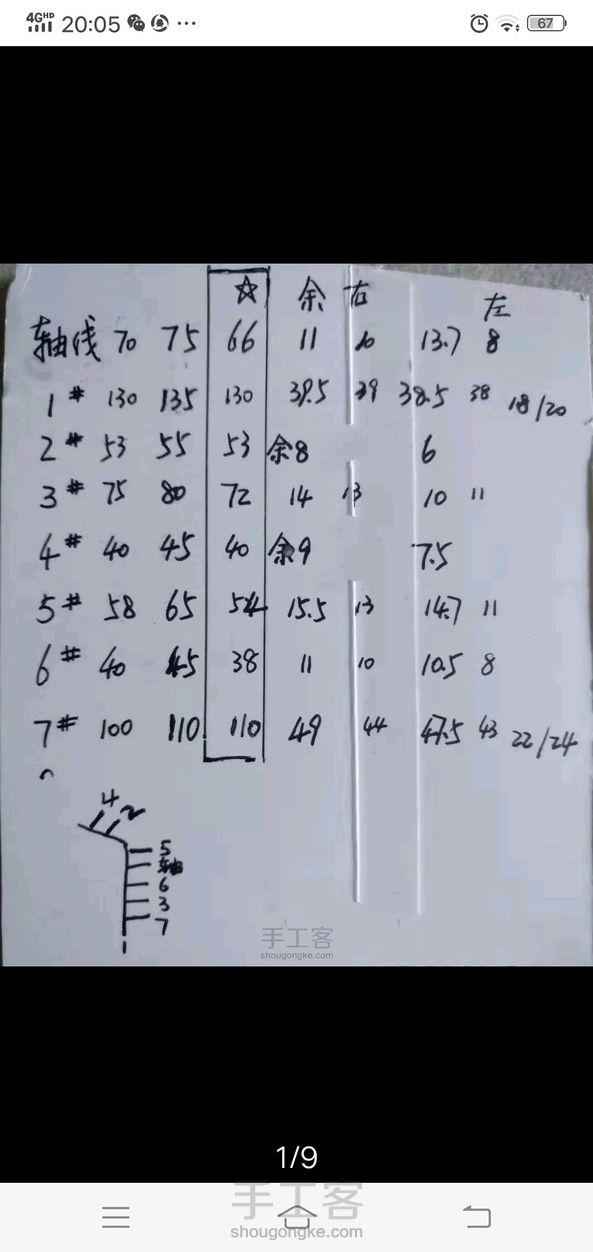 4G HD 20:05 67
☆ 余 右 左
轴线 70 75 66 11 10 13.7 8
1# 130 135 130 39.5 39 38.5 38 18/20
2# 53 55 53 余8 6
3# 75 80 72 14 13 10 11
4# 40 45 40 余9 7.5
5# 58 65 54 15.5 13 14.7 11
6# 40 45 38 11 10 10.5 8
7# 100 110 110 49 44 47.5 43 22/24
4 2
5
轴
6
3
7
1
手工客
shougongke.com
1/9
手工客
shougongke.com